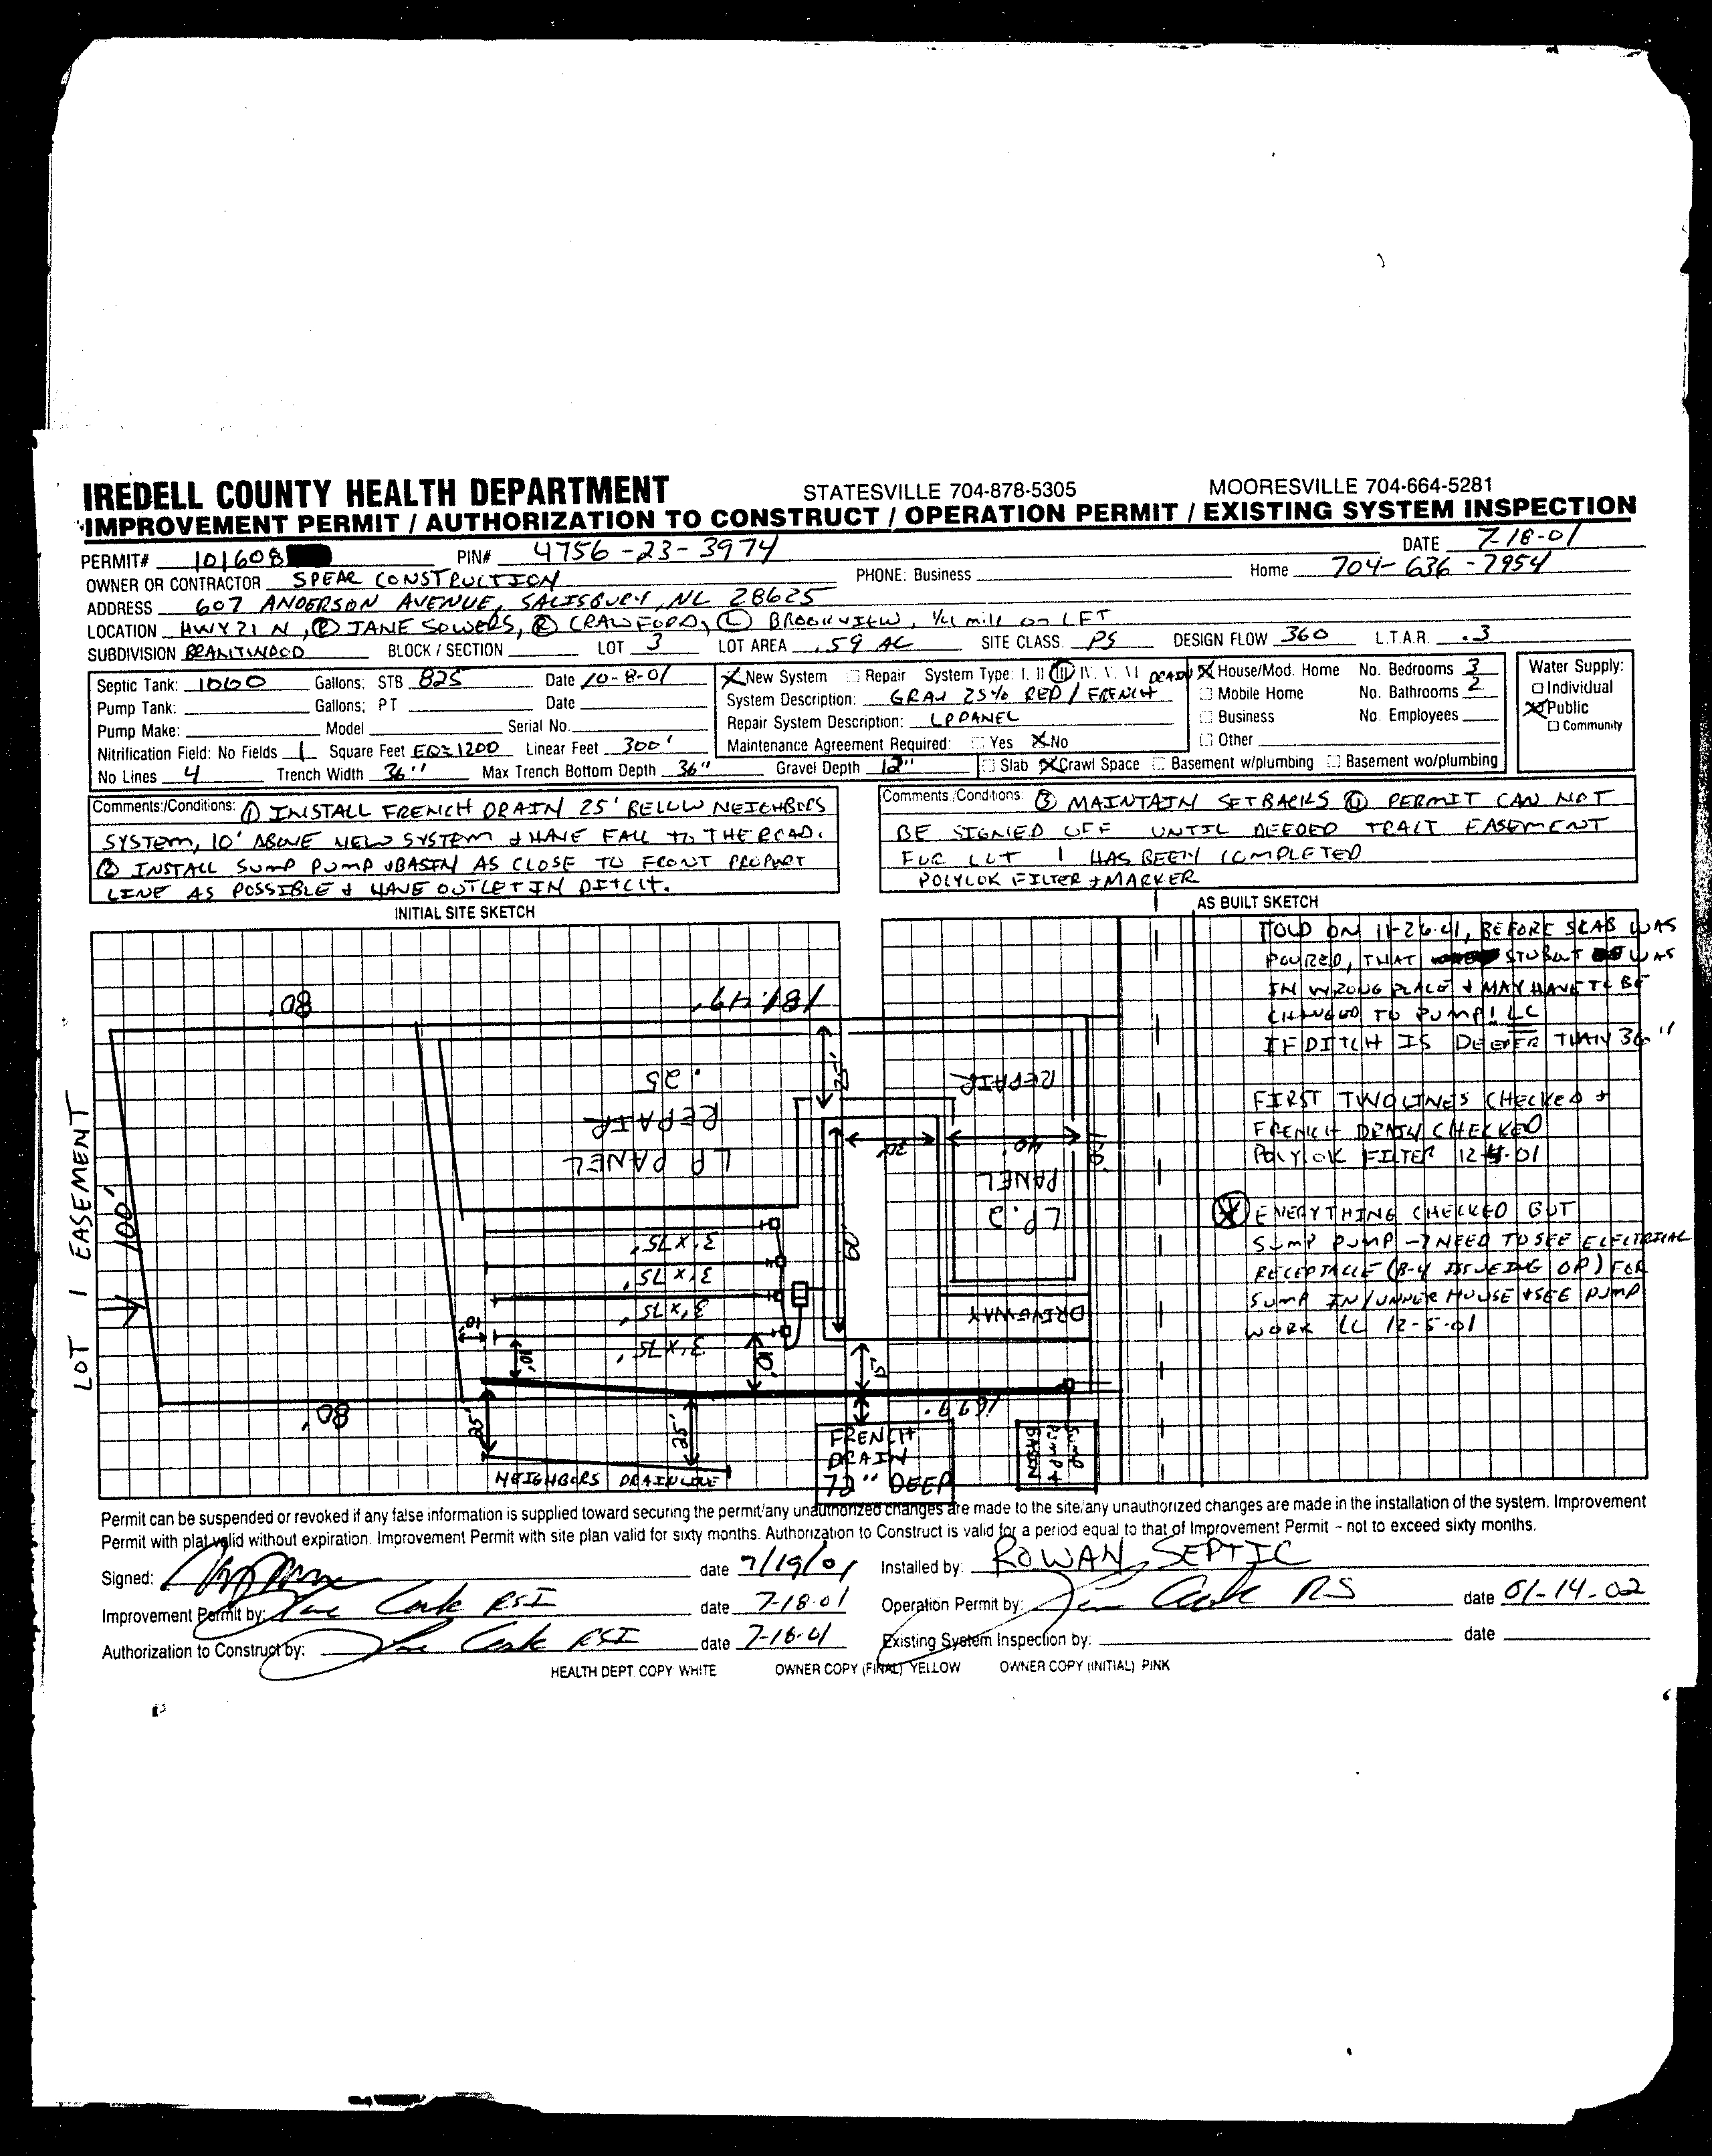 IREDELL COUNTY HEALTH DEPARTMENT STATESVILLE 704-878-5305 MOORESVILLE 704-664-5281
IMPROVEMENT PERMIT / AUTHORIZATION TO CONSTRUCT / OPERATION PERMIT / EXISTING SYSTEM INSPECTION
PERMIT# 101608 PIN# 4756-23-3974 DATE 7-18-01
OWNER OR CONTRACTOR SPEAR CONSTRUCTION PHONE: Business Home 704-636-7954
ADDRESS 607 ANDERSON AVENUE, SALISBURY, NC 28625
LOCATION HWY 21 N, (R) JANE SOWERS, (R) CRAWFORD, (L) BROOKVIEW, 1/4 mile on LFT
SUBDIVISION BRANTWOOD BLOCK / SECTION LOT 3 LOT AREA .59 AC SITE CLASS. PS DESIGN FLOW 360 L.T.A.R. .3
Septic Tank: 1000 Gallons: STB 825 Date 10-8-01
Pump Tank: Gallons; PT Date
Pump Make: Model Serial No.
Nitrification Field: No Fields 1 Square Feet EQ=1200 Linear Feet 300'
No Lines 4 Trench Width 36" Max Trench Bottom Depth 36" Gravel Depth 12"
X New System Repair System Type: I. II III IV. V. VI DRAIN
System Description: GRAV 25% RED / FRENCH
Repair System Description: LP PANEL
Maintenance Agreement Required: Yes X No
Slab X Crawl Space Basement w/plumbing Basement wo/plumbing
X House/Mod. Home No. Bedrooms 3
Mobile Home No. Bathrooms 2
Business No. Employees
Other
Water Supply:
Individual
X Public
Community
Comments:/Conditions: ① INSTALL FRENCH DRAIN 25' BELOW NEIGHBORS
SYSTEM, 10' ABOVE NEW SYSTEM + HAVE FALL TO THE ROAD.
② INSTALL SUMP PUMP + BASIN AS CLOSE TO FRONT PROPERT
LINE AS POSSIBLE + HAVE OUTLET IN DITCH.
Comments:/Conditions: ③ MAINTAIN SETBACKS ④ PERMIT CAN NOT
BE SIGNED OFF UNTIL DEEDED TRACT EASEMENT
FOR LOT 1 HAS BEEN COMPLETED
POLYLOK FILTER + MARKER
INITIAL SITE SKETCH
AS BUILT SKETCH
80'
181.49'
LOT 1 EASEMENT
100'
.25
REPAIR
LP PANEL
REPAIR
PANEL
L.P.2
30'
40'
60'
3'x75'
3'x75'
3'x75'
3'x75'
DRIVEWAY
10'
10'
10'
5'
80'
25'
25'
NEIGHBORS DRAINLINE
FRENCH
DRAIN
72" DEEP
SUMP
PUMP +
BASIN
TOLD ON 11-26-01, BEFORE SLAB WAS
POURED, THAT STUBOUT WAS
IN WRONG PLACE + MAY HAVE TO BE
CHANGED TO PUMP! LC
IF DITCH IS DEEPER THAN 36"
FIRST TWO LINES CHECKED +
FRENCH DRAIN CHECKED
POLYLOK FILTER 12-4-01
EVERYTHING CHECKED BUT
SUMP PUMP → NEED TO SEE ELECTRICAL
RECEPTACLE (B-4 ISSUEING OP) FOR
SUMP IN/UNDER HOUSE + SEE PUMP
WORK LC 12-5-01
Permit can be suspended or revoked if any false information is supplied toward securing the permit/any unauthorized changes are made to the site/any unauthorized changes are made in the installation of the system. Improvement
Permit with plat valid without expiration. Improvement Permit with site plan valid for sixty months. Authorization to Construct is valid for a period equal to that of Improvement Permit – not to exceed sixty months.
Signed: date 7/19/01 Installed by: ROWAN SEPTIC
Improvement Permit by: Cook RSI date 7-18-01 Operation Permit by: Cook RS date 01-14-02
Authorization to Construct by: Cook RSI date 7-18-01 Existing System Inspection by: date
HEALTH DEPT. COPY WHITE OWNER COPY (FINAL) YELLOW OWNER COPY (INITIAL) PINK